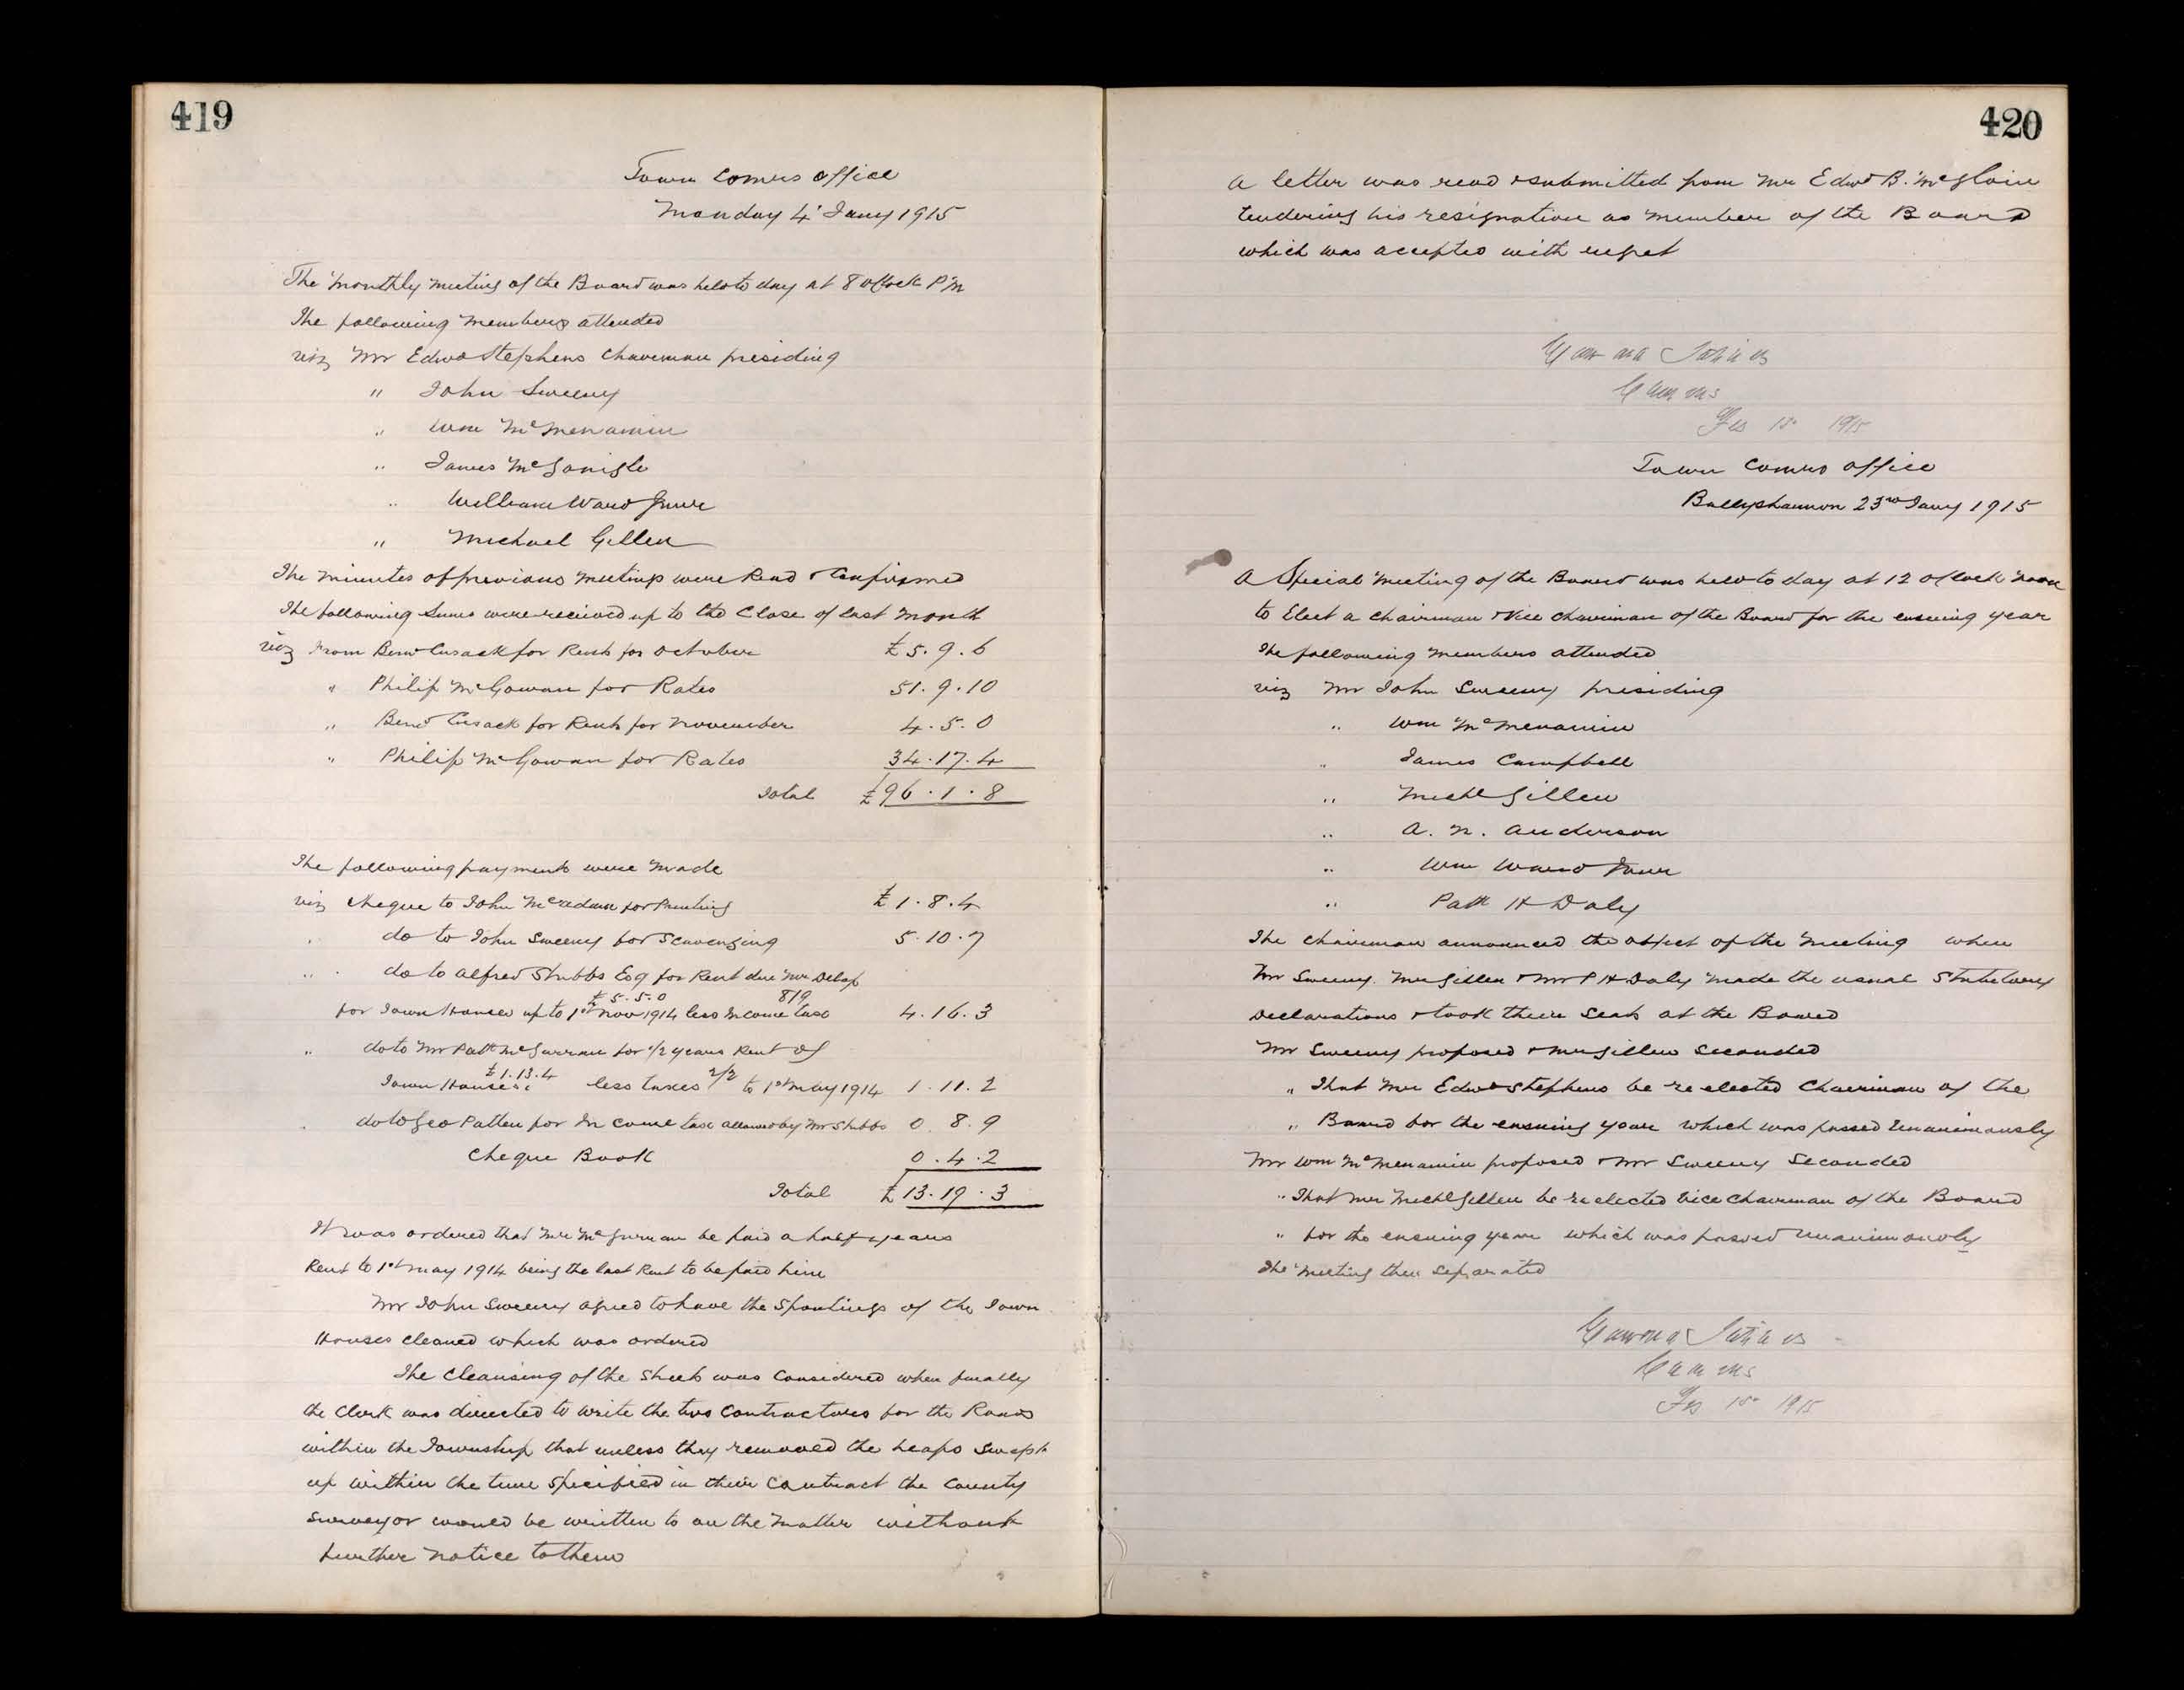 419
Town Comrs Office
Monday 4' Jany 1915
The Monthly Meeting of the Board was held to day at 8 oClock P.M
The following Members attended
viz Mr Edwd Stephens Chairman presiding
" John Sweeny
" Wm McMenamin
" James McGonigle
" William Ward Junr
" Michael Gillen
The Minutes of previous Meetings were Read & Confirmed
The following Sums were received up to the Close of last Month
viz From Bernd Cusack for Rents for October £5.9.6
" Philip McGowan for Rates 51.9.10
" Bernd Cusack for Rents for November 4.5.0
" Philip McGowan for Rates 34.17.4
Total £96.1.8
The following payments were made
viz Cheque to John for Printing £1.8.4
do to John Sweeny for Scavenging 5.10.7
" do to Alfred Stubbs Esq for Rent due Mr Delap
£5.5.0 8/9
for Town Houses up to 1st Nov 1914 less Income tax 4.16.3
" do to Mr Patk McGurran for 1/2 years Rent of
£1.13.4 2/2
Town Houses less taxes to 1st May 1914 1.11.2
do to Geo Patten for In come tax allowed by Mr Stubbs 0.8.9
Cheque Book 0.4.2
Total £13.19.3
It was ordered that Mr McGurran be paid a half years
Rent to 1st May 1914 being the last Rent to be paid him
Mr John Sweeny agreed to have the Spoutings of the Town
Houses cleaned which was ordered
The Cleansing of the Streets was Considered when finally
the Clerk was directed to write the two Contractors for the Roads
within the Township that unless they removed the heaps Swept
up within the time Specified in their Contract the County
Surveyor would be written to on the Matter without
further notice to them
420
A letter was read & submitted from Mr Edwd B. McGloin
tendering his resignation as Member of the Board
which was accepted with regret
Feb 1915
Town Comrs Office
Ballyshannon 23rd Jany 1915
A Special Meeting of the Board was held to day at 12 oClock Noon
to Elect a Chairman & Vice Chairman of the Board for the ensuing year
The following Members attended
viz Mr John Sweeny presiding
" Wm McMenamin
" James Campbell
" Michl Gillen
" A. N. Anderson
" Wm Ward Junr
" Patk H Daly
The Chairman announced the object of the Meeting when
Mr Sweeny. Mr Gillen & Mr P H Daly Made the usual Statutory
Declarations & took their Seats at the Board
Mr Sweeny proposed & Mr Gillen Seconded
" That Mr Edwd Stephens be re elected Chairman of the
" Board for the ensuing year which was passed Unanimously
Mr Wm McMenamin proposed & Mr Sweeny Seconded
" That Mr Michl Gillen be re elected Vice Chairman of the Board
" for the ensuing year which was passed Unanimously
The Meeting then Separated
1915